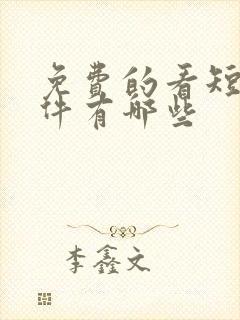 免费的看短
件有哪些
李鑫文